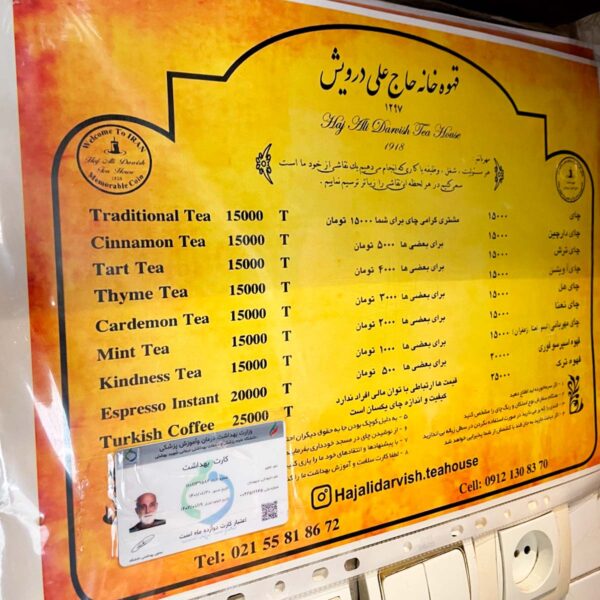 قهوه خانه حاج علی درویش
۱۲۹۷
Haj Ali Darvish Tea House
1918
Welcome To IRAN
Haj Ali Darvish
Tea House
1918
Memorable Coin
مهربانم
هر مسئولیت، شغل، وظیفه یا کاری که انجام می دهیم یک نقاشی از خود ما است
سعی کنیم در هر لحظه این نقاشی را زیباتر ترسیم نماییم.
Traditional Tea 15000 T
Cinnamon Tea 15000 T
Tart Tea 15000 T
Thyme Tea 15000 T
Cardemon Tea 15000 T
Mint Tea 15000 T
Kindness Tea 15000 T
Espresso Instant 20000 T
Turkish Coffee 25000 T
مشتری گرامی چای برای شما ۱۵۰۰۰ تومان
برای بعضی ها ۵۰۰۰ تومان
برای بعضی ها ۴۰۰۰ تومان
برای بعضی ها ۳۰۰۰ تومان
برای بعضی ها ۲۰۰۰ تومان
برای بعضی ها ۱۰۰۰ تومان
برای بعضی ها ۵۰۰ تومان
قیمت ها ارتباطی با توان مالی افراد ندارد
کیفیت و اندازه چای یکسان است
چای ۱۵۰۰۰
چای دارچین ۱۵۰۰۰
چای ترش ۱۵۰۰۰
چای آویشن ۱۵۰۰۰
چای هل ۱۵۰۰۰
چای نعنا ۱۵۰۰۰
چای مهربانی ۱۵۰۰۰
قهوه اسپرسو فوری ۲۰۰۰۰
قهوه ترک ۲۵۰۰۰
وزارت بهداشت درمان وآموزش پزشکی
کارت بهداشت
اعتبار کارت دوازده ماه است
Hajalidarvish.teahouse
Tel: 021 55 81 86 72
Cell: 0912 130 83 70